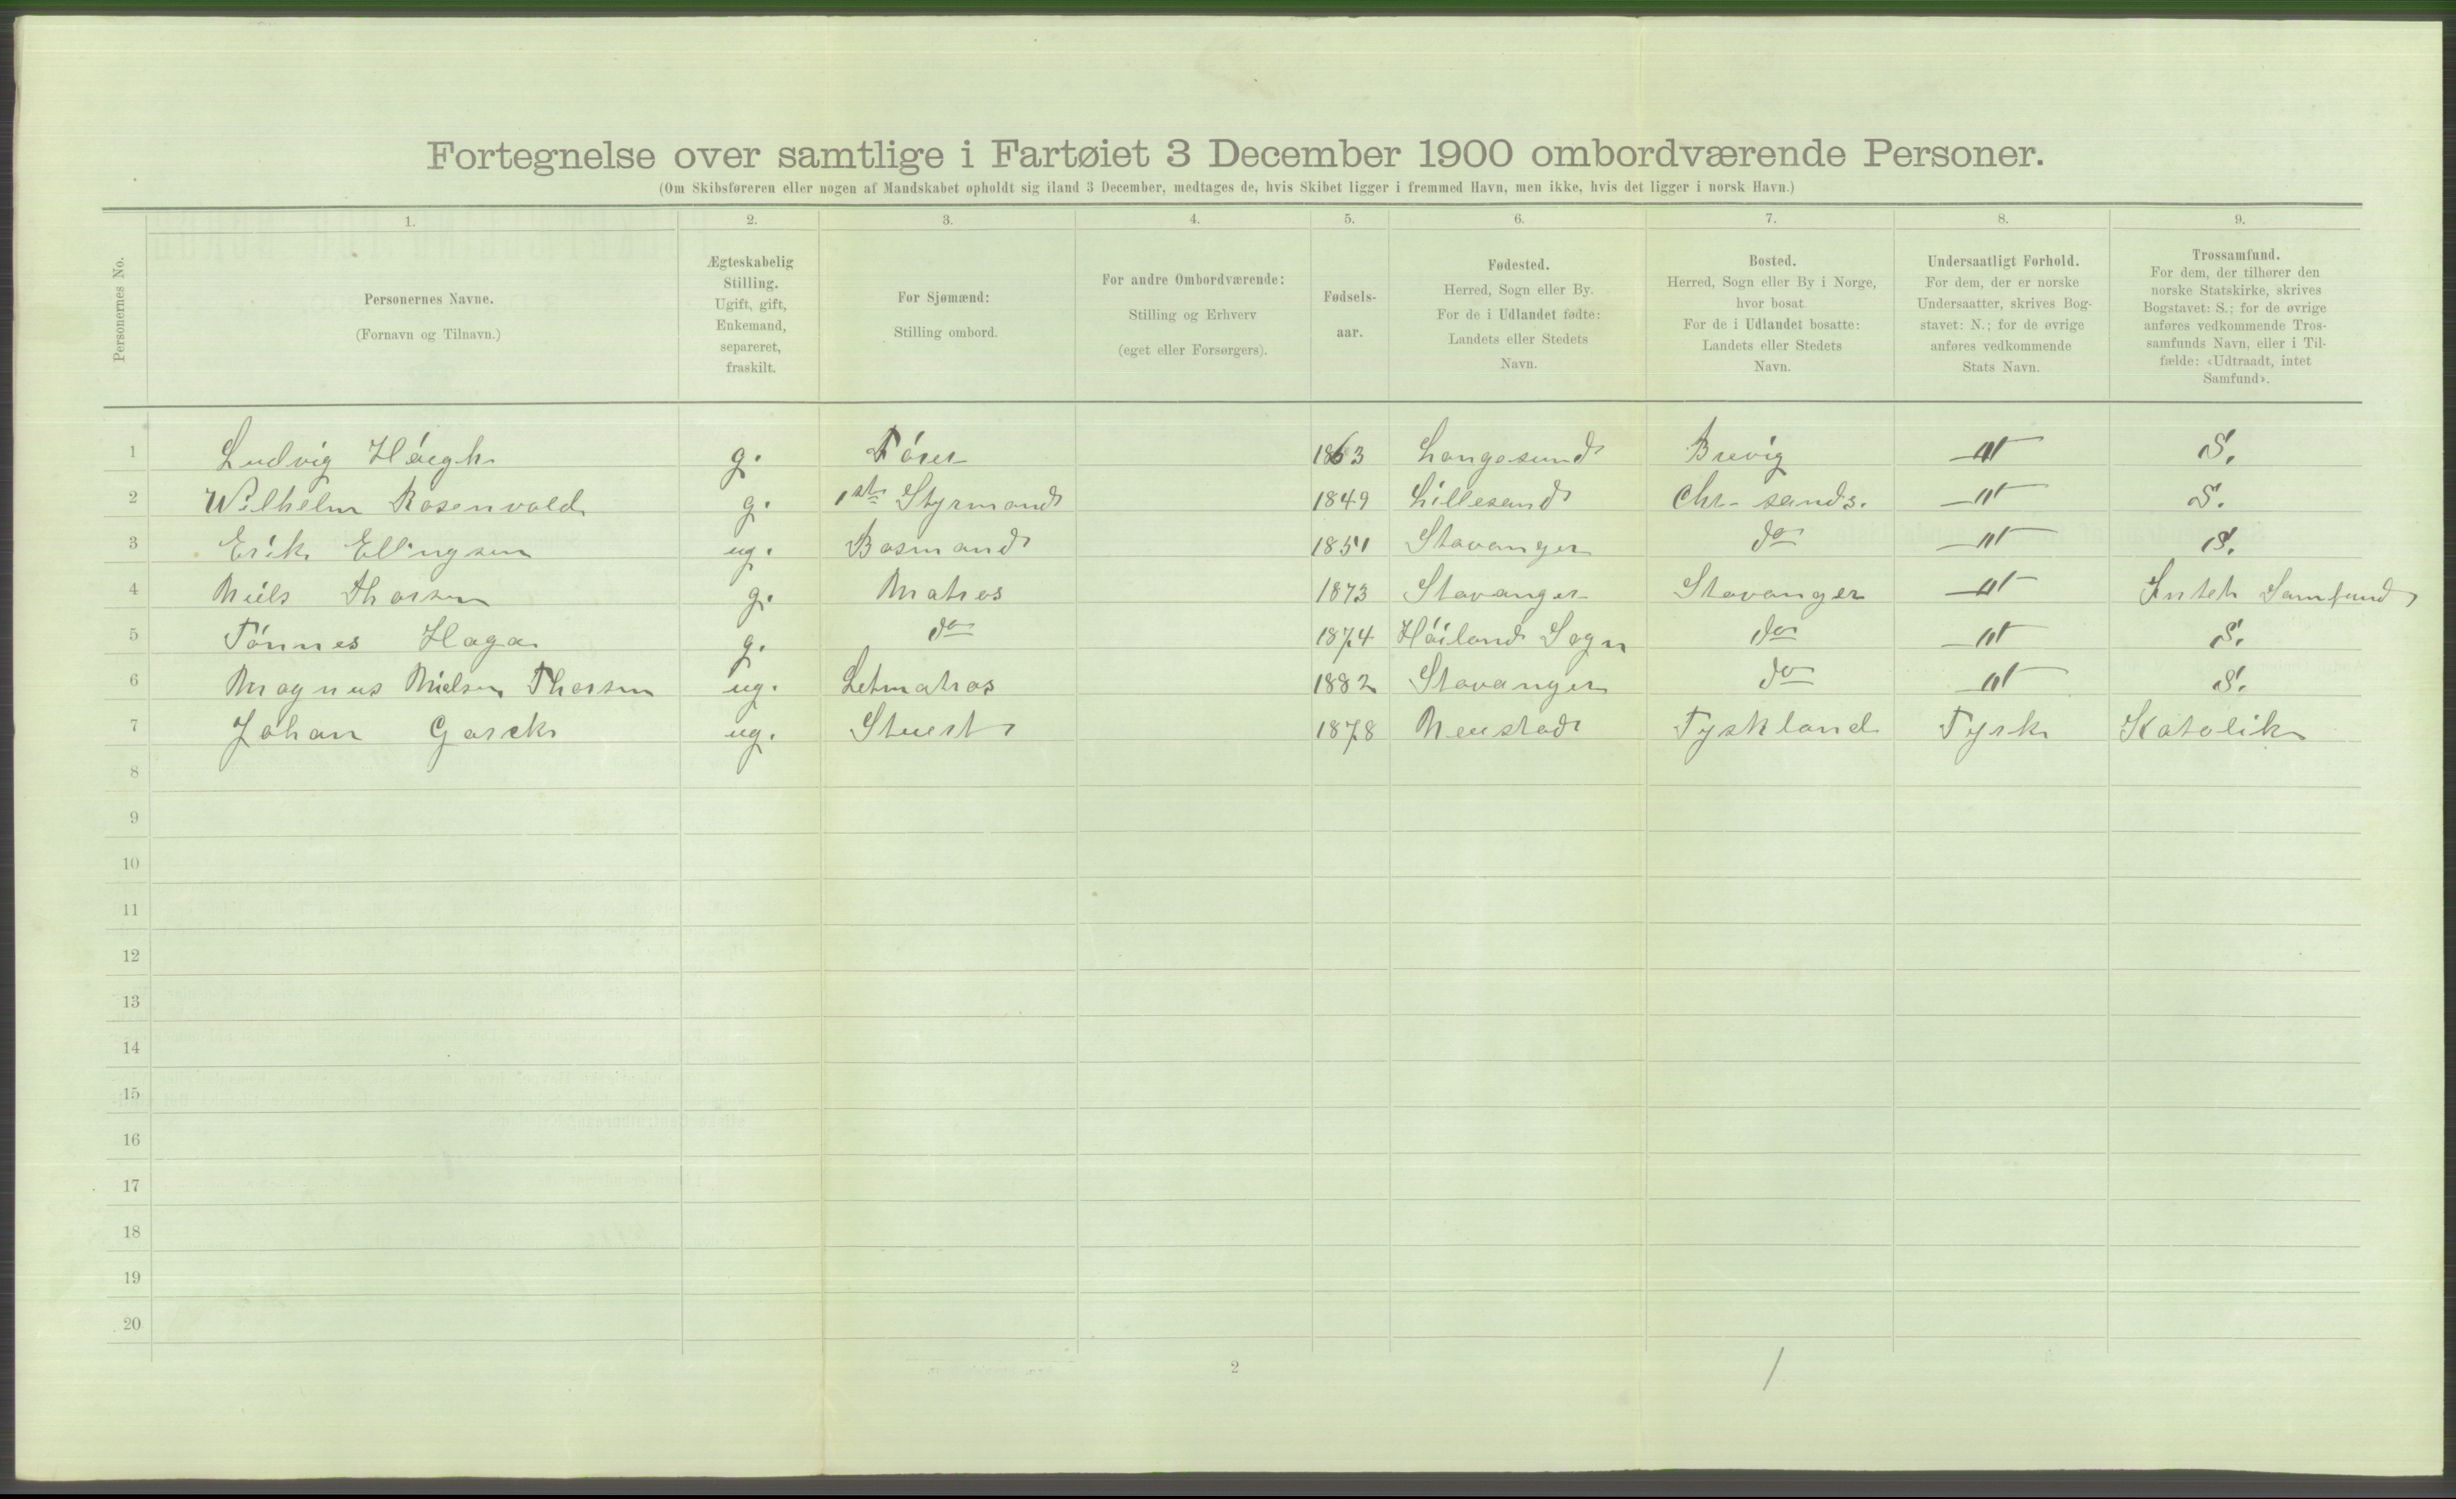 Fortegnelse over samtlige i Fartøiet 3 December 1900 ombordværende Personer.
(Om Skibsføreren eller nogen af Mandskabet opholdt sig iland 3 December, medtages de, hvis Skibet ligger i fremmed Havn, men ikke, hvis det ligger i norsk Havn.)
Personernes No.
1.
Personernes Navne.
(Fornavn og Tilnavn.)
2.
Ægteskabelig
Stilling.
Ugift, gift,
Enkemand,
separeret,
fraskilt.
3.
For Sjømænd:
Stilling ombord.
4.
For andre Ombordværende:
Stilling og Erhverv
(eget eller Forsørgers).
5.
Fødsels-
aar.
6.
Fødested.
Herred, Sogn eller By.
For de i Udlandet fødte:
Landets eller Stedets
Navn.
7.
Bosted.
Herred, Sogn eller By i Norge,
hvor bosat
For de i Udlandet bosatte:
Landets eller Stedets
Navn.
8.
Undersaatligt Forhold.
For dem, der er norske
Undersaatter, skrives Bog-
stavet: N.; for de øvrige
anføres vedkommende
Stats Navn.
9.
Trossamfund.
For dem, der tilhører den
norske Statskirke, skrives
Bogstavet: S.; for de øvrige
anføres vedkommende Tros-
samfunds Navn, eller i Til-
fælde: «Udtraadt, intet
Samfund».
1 Ludvig g. Fører 1863 Langesund Brevig S.
2 Wilhelm Rosenvold g. 1ste Styrmand 1849 Lillesand Chr-sands. S.
3 Erik Ellingsen ug. Bosmand 1851 Stavanger do S.
4 Niels Thorsen g. Matros 1873 Stavanger Stavanger Intet Samfund
5 Tönnes Haga g. do 1874 Höiland Sogn do S.
6 Magnus Nielsen Thorsen ug. Letmatros 1882 Stavanger do S.
7 Johan ug. Stuert 1878 Neustad Tyskland Tysk Katolik
8
9
10
11
12
13
14
15
16
17
18
19
20
2